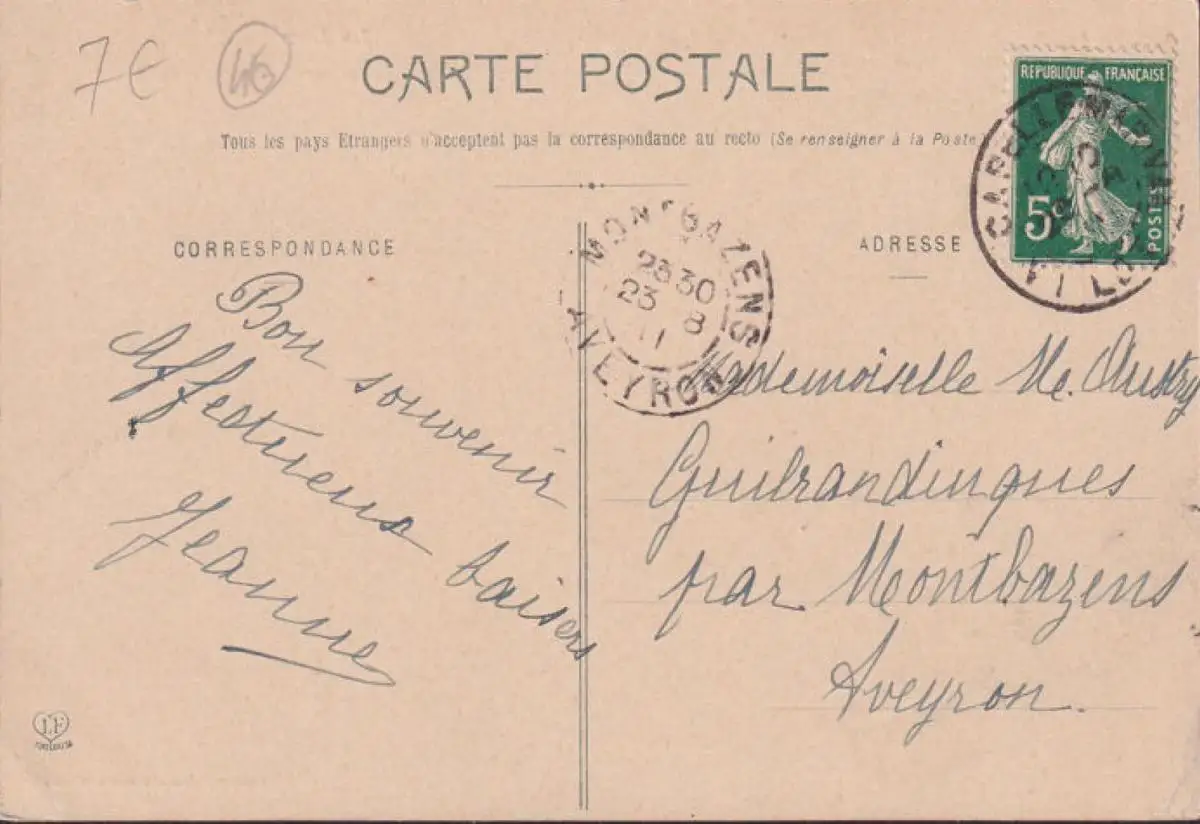 7€
46
CARTE POSTALE
Tous les pays Etrangers n'acceptent pas la correspondance au recto (Se renseigner à la Poste)
REPUBLIQUE FRANÇAISE
5c
POSTES
CORRESPONDANCE
ADRESSE
MONTBAZENS
23 30
23 8
11
AVEYRON
Bon souvenir
Affectueux baisers
Jeanne
Mademoiselle M.
Guilrandingues
par Montbazens
Aveyron.
LF
TOULOUSE